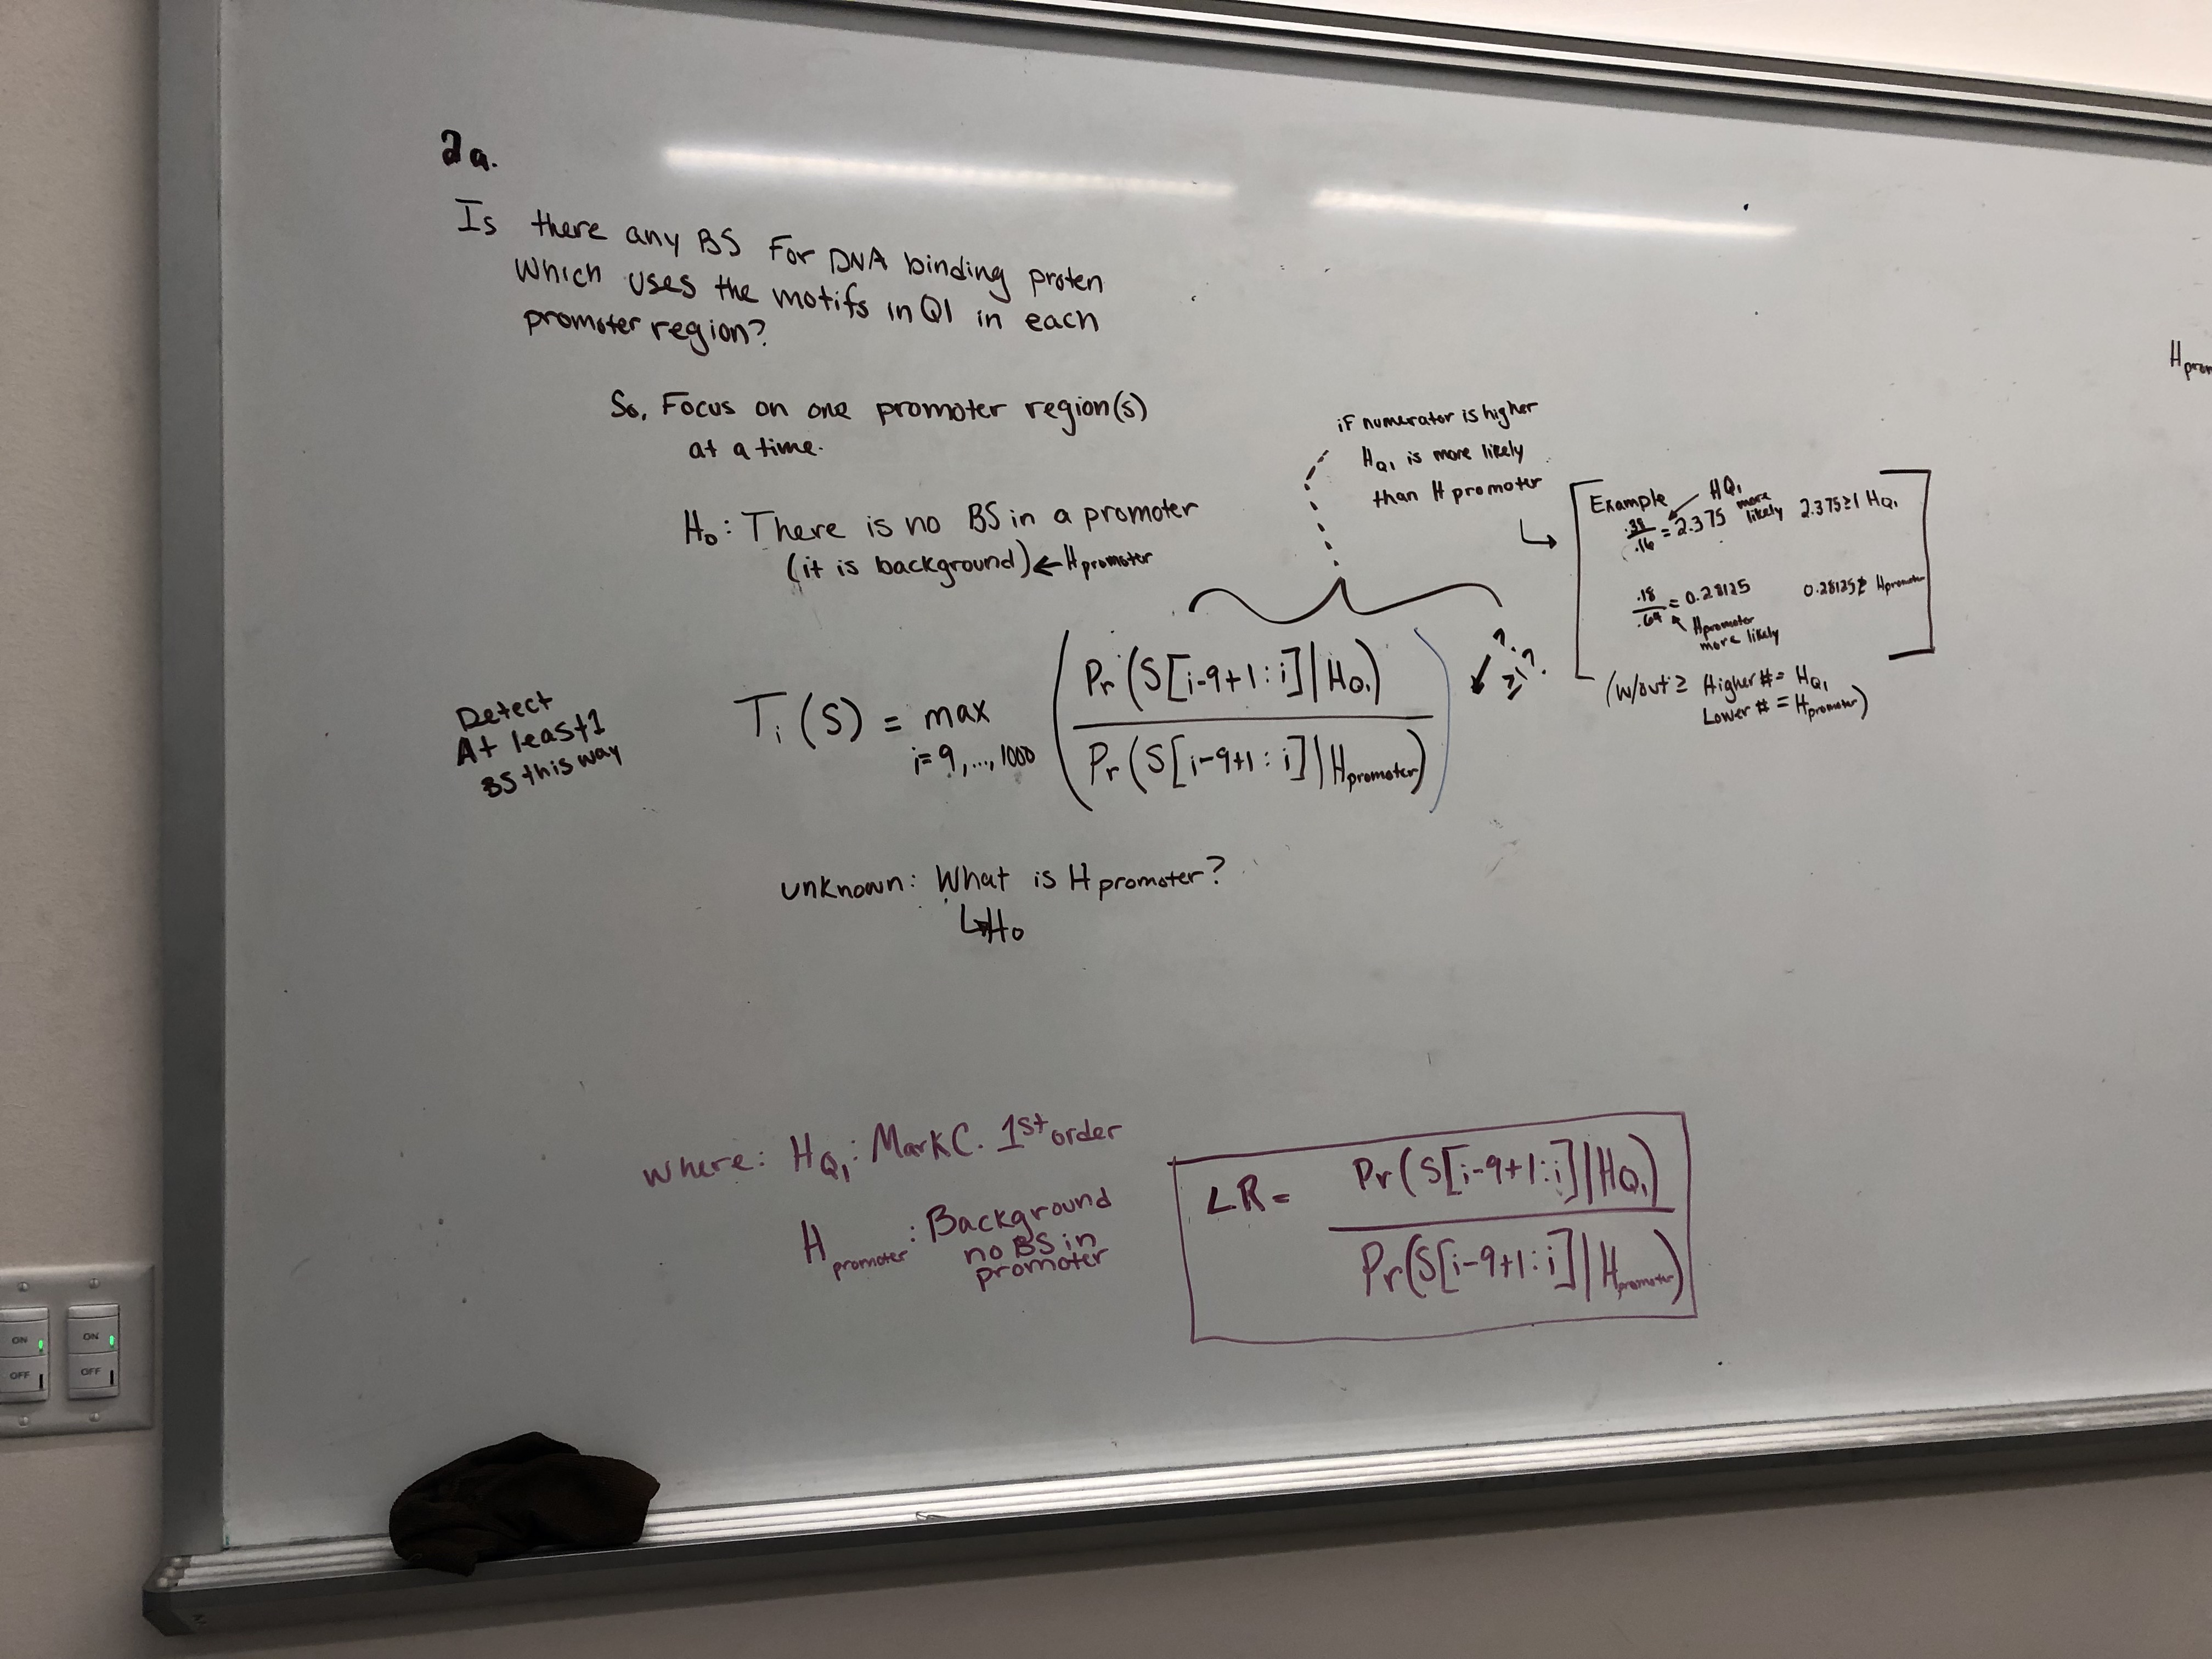 2a.
Is there any BS For DNA binding proten
which uses the motifs in Q1 in each
promoter region?
So, Focus on one promoter region(s)
at a time.
H₀: There is no BS in a promoter
(it is background) ← H promoter
if numerator is higher
H_Q1 is more likely
than H promoter
Example
.38/.16 = 2.375 HQ1 more likely 2.375≥1 HQ1
.18/.64 = 0.28125 0.28125≱ Hpromoter
Hpromoter
more likely
(w/out ≥ Higher # = HQ1
Lower # = Hpromoter)
Detect
At least 1
BS this way
T_i(S) = max i=9,...,1000 ( Pr(S[i-9+1:i]|H_Q1) / Pr(S[i-9+1:i]|H_promoter) )
? ≥ ?
unknown: What is H promoter?
↳ H₀
H prom
where: H_Q1: MarkC. 1st order
H_promoter: Background
no BS in
promoter
LR = Pr(S[i-9+1:i]|H_Q1) / Pr(S[i-9+1:i]|H_promoter)
ON
ON
OFF
OFF